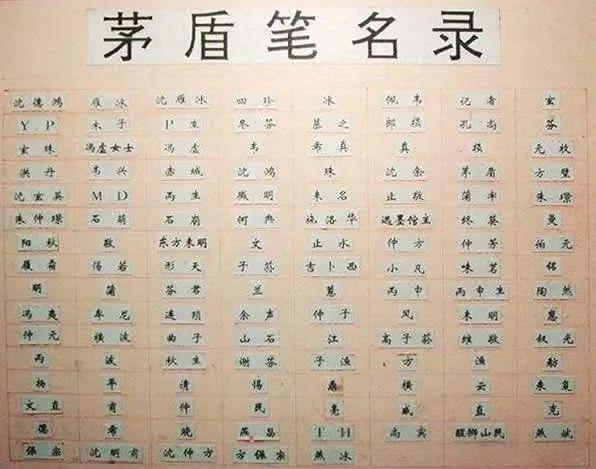 茅盾笔名录
沈德鸿 雁冰 沈雁冰 四珍 冰 佩韦 记者 玄
Y.P 木子 P生 冬芬 慕之 郎损 孔常 芬
玄珠 冯虚女士 冯虚 韦 希真 真 损 元枚
洪丹 韦兴 赤城 沈鸿 珠 沈余 茅盾 方璧
沈玄英 M D 丙生 微明 未名 止敬 蒲牢 朱璟
朱仲璟 石萌 石崩 何典 施洛华 逃墨馆主 终葵 曼
阳秋 敬 东方未明 文 止水 仲方 仲芳 伯元
雁 惕若 形天 子荪 吉卜西 小凡 味茗 铭
明 蒲 芬君 兰 蕙 丙申 丙申生 陶然
冯夷 牟尼 连琐 余声 仲子 风 未明 惠
仲元 横波 曲子 山石 江 高子荪 维敬 叙元
丙 波 秋生 谢芬 子渔 方 渔
杨 平 清 惕 鼎 横 云 来复
文直 甫 仲 民 亮 威 直 克
德 希 晓 燕昌 T H 高宾 醒狮山民 燕斌
保宗 沈明甫 沈仲方 方保宗 燕冰